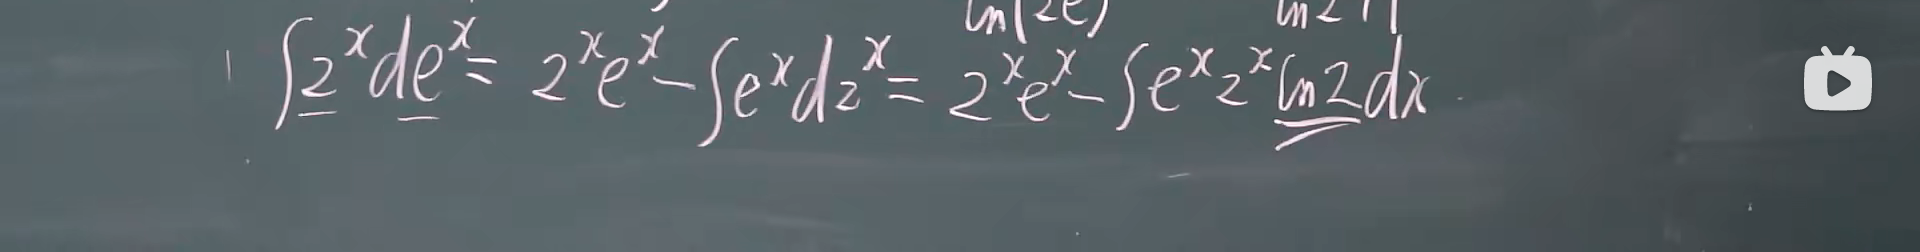 ln(2e) ln2+1
∫2ˣdeˣ = 2ˣeˣ - ∫eˣd2ˣ = 2ˣeˣ - ∫eˣ2ˣln2dx